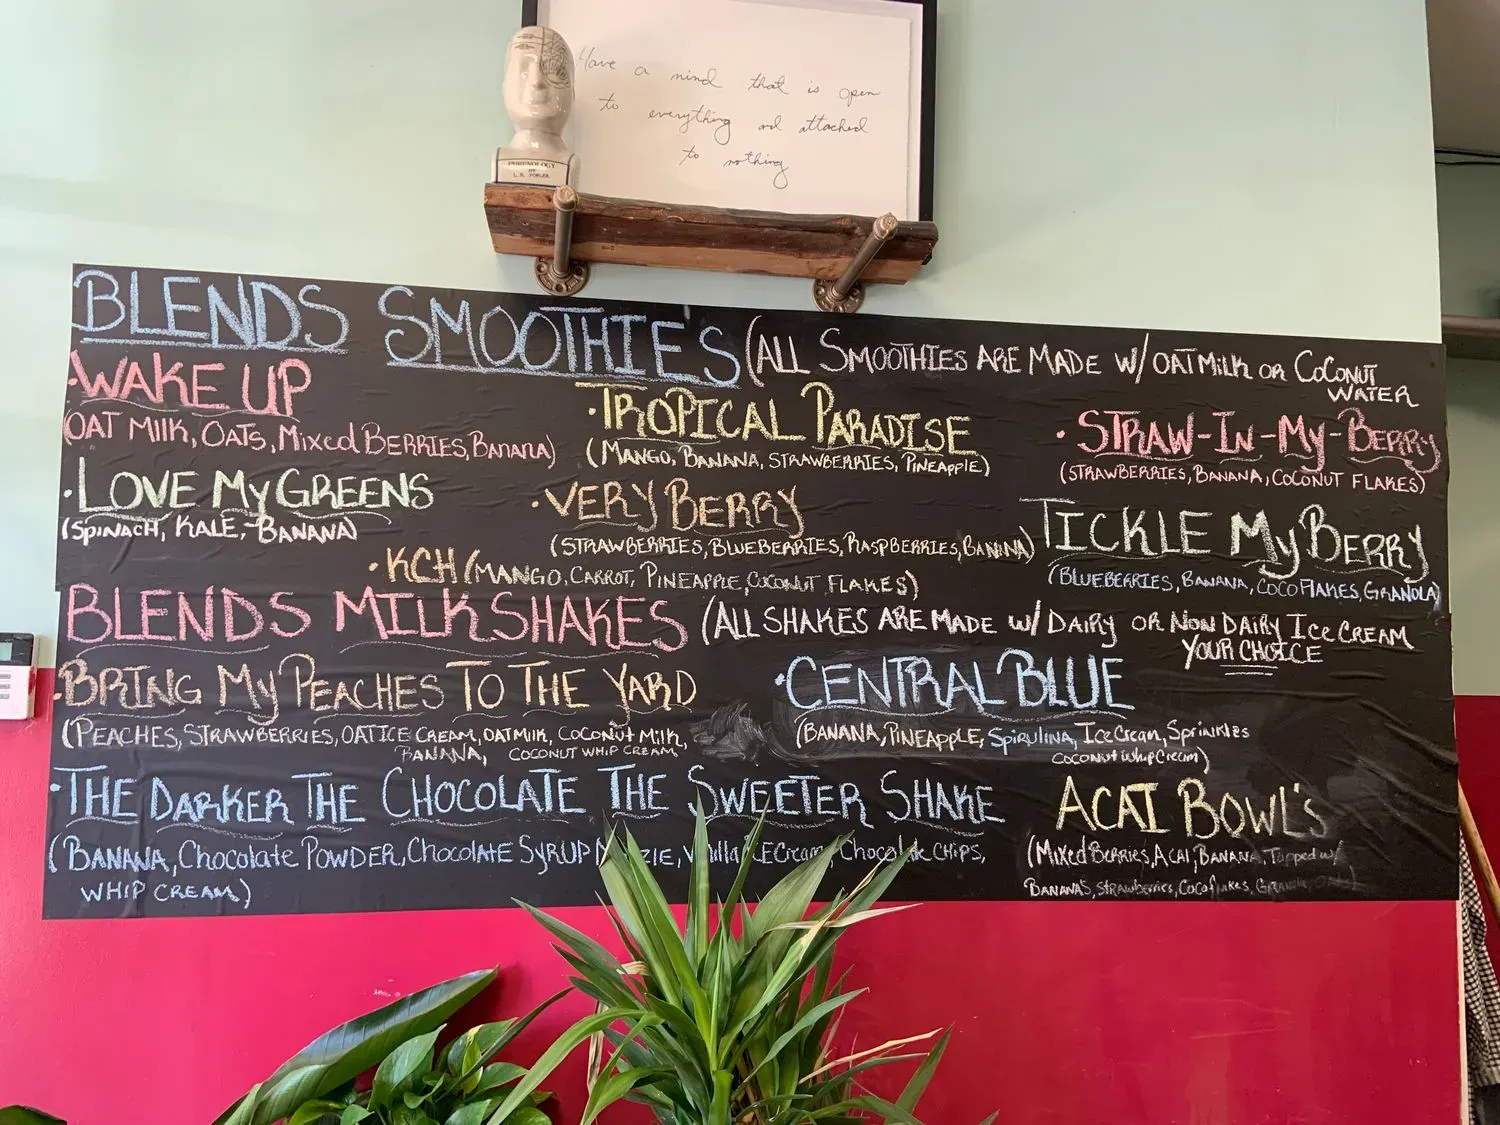 Have a mind that is open
to everything and attached
to nothing
PHRENOLOGY
BY
L.N. FOWLER
BLENDS SMOOTHIES (ALL SMOOTHIES ARE MADE W/ OAT MILK OR COCONUT
WATER
·WAKE UP
(OAT MIlk, OATS, Mixed BERRIES, BANANA)
·TROPICAL PARADISE
(MANGO, BANANA, STRAWBERRIES, PINEAPPLE)
·STRAW-IN-MY-BERRY
(STRAWBERRIES, BANANA, COCONUT FLAKES)
·LOVE My GREENS
(SPINACH, KALE, BANANA)
·VERY BERRY
(STRAWBERRIES, BLUEBERRIES, RASPBERRIES, BANANA)
TICKLE My BERRY
(BLUEBERRIES, BANANA, COCO FLAKES, GRANOLA)
·KCH (MANGO, CARROT, PINEAPPLE, COCONUT FLAKES)
BLENDS MILKSHAKES (ALL SHAKES ARE MADE W/ DAIRY OR NON DAIRY ICE CREAM
YOUR CHOICE
·BRING My PEACHES TO THE YARD
(PEACHES, STRAWBERRIES, OAT ICE CREAM, OAT MILK, COCONUT MILK,
BANANA, COCONUT WHIP CREAM
·CENTRAL BLUE
(BANANA, PINEAPPLE, SPIRULINA, Ice Cream, Sprinkles
COCONUT WHIP Cream)
·THE DARKER THE CHOCOLATE THE SWEETER SHAKE
(BANANA, Chocolate POWDER, Chocolate SYRUP Vanilla ICE Cream, Chocolate CHIPS,
WHIP CREAM)
ACAI BOWL's
(Mixed Berries, Acai, BANANA, Topped w/
BANANA'S, Strawberries, Coco flakes, GRANOLA